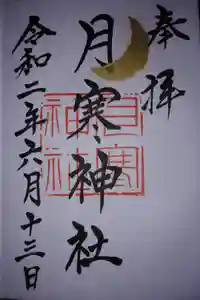 奉拝
月寒神社
月寒神社
令和二年六月十三日